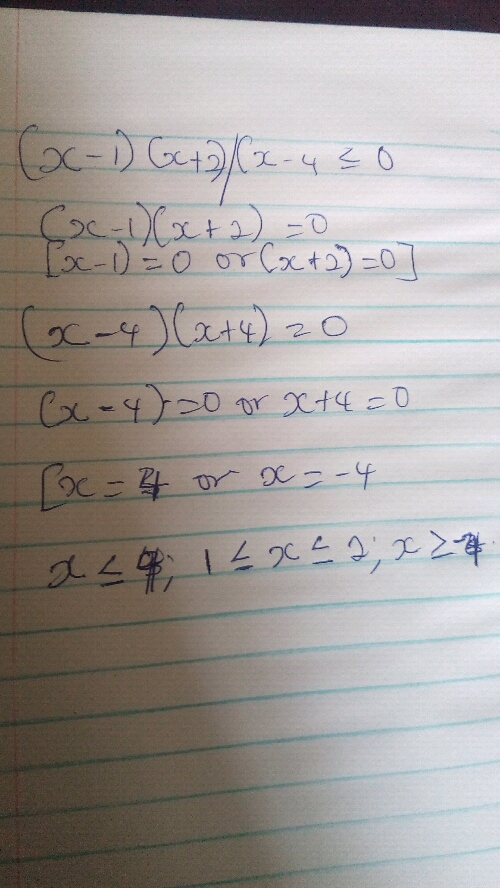 (x-1)(x+2)/(x-4 ≤ 0
(x-1)(x+2) =0
[x-1)=0 or(x+2)=0]
(x-4)(x+4)=0
(x-4)=0 or x+4=0
[x = 4 or x=-4
x ≤ 4; 1≤x≤2; x≥-4.